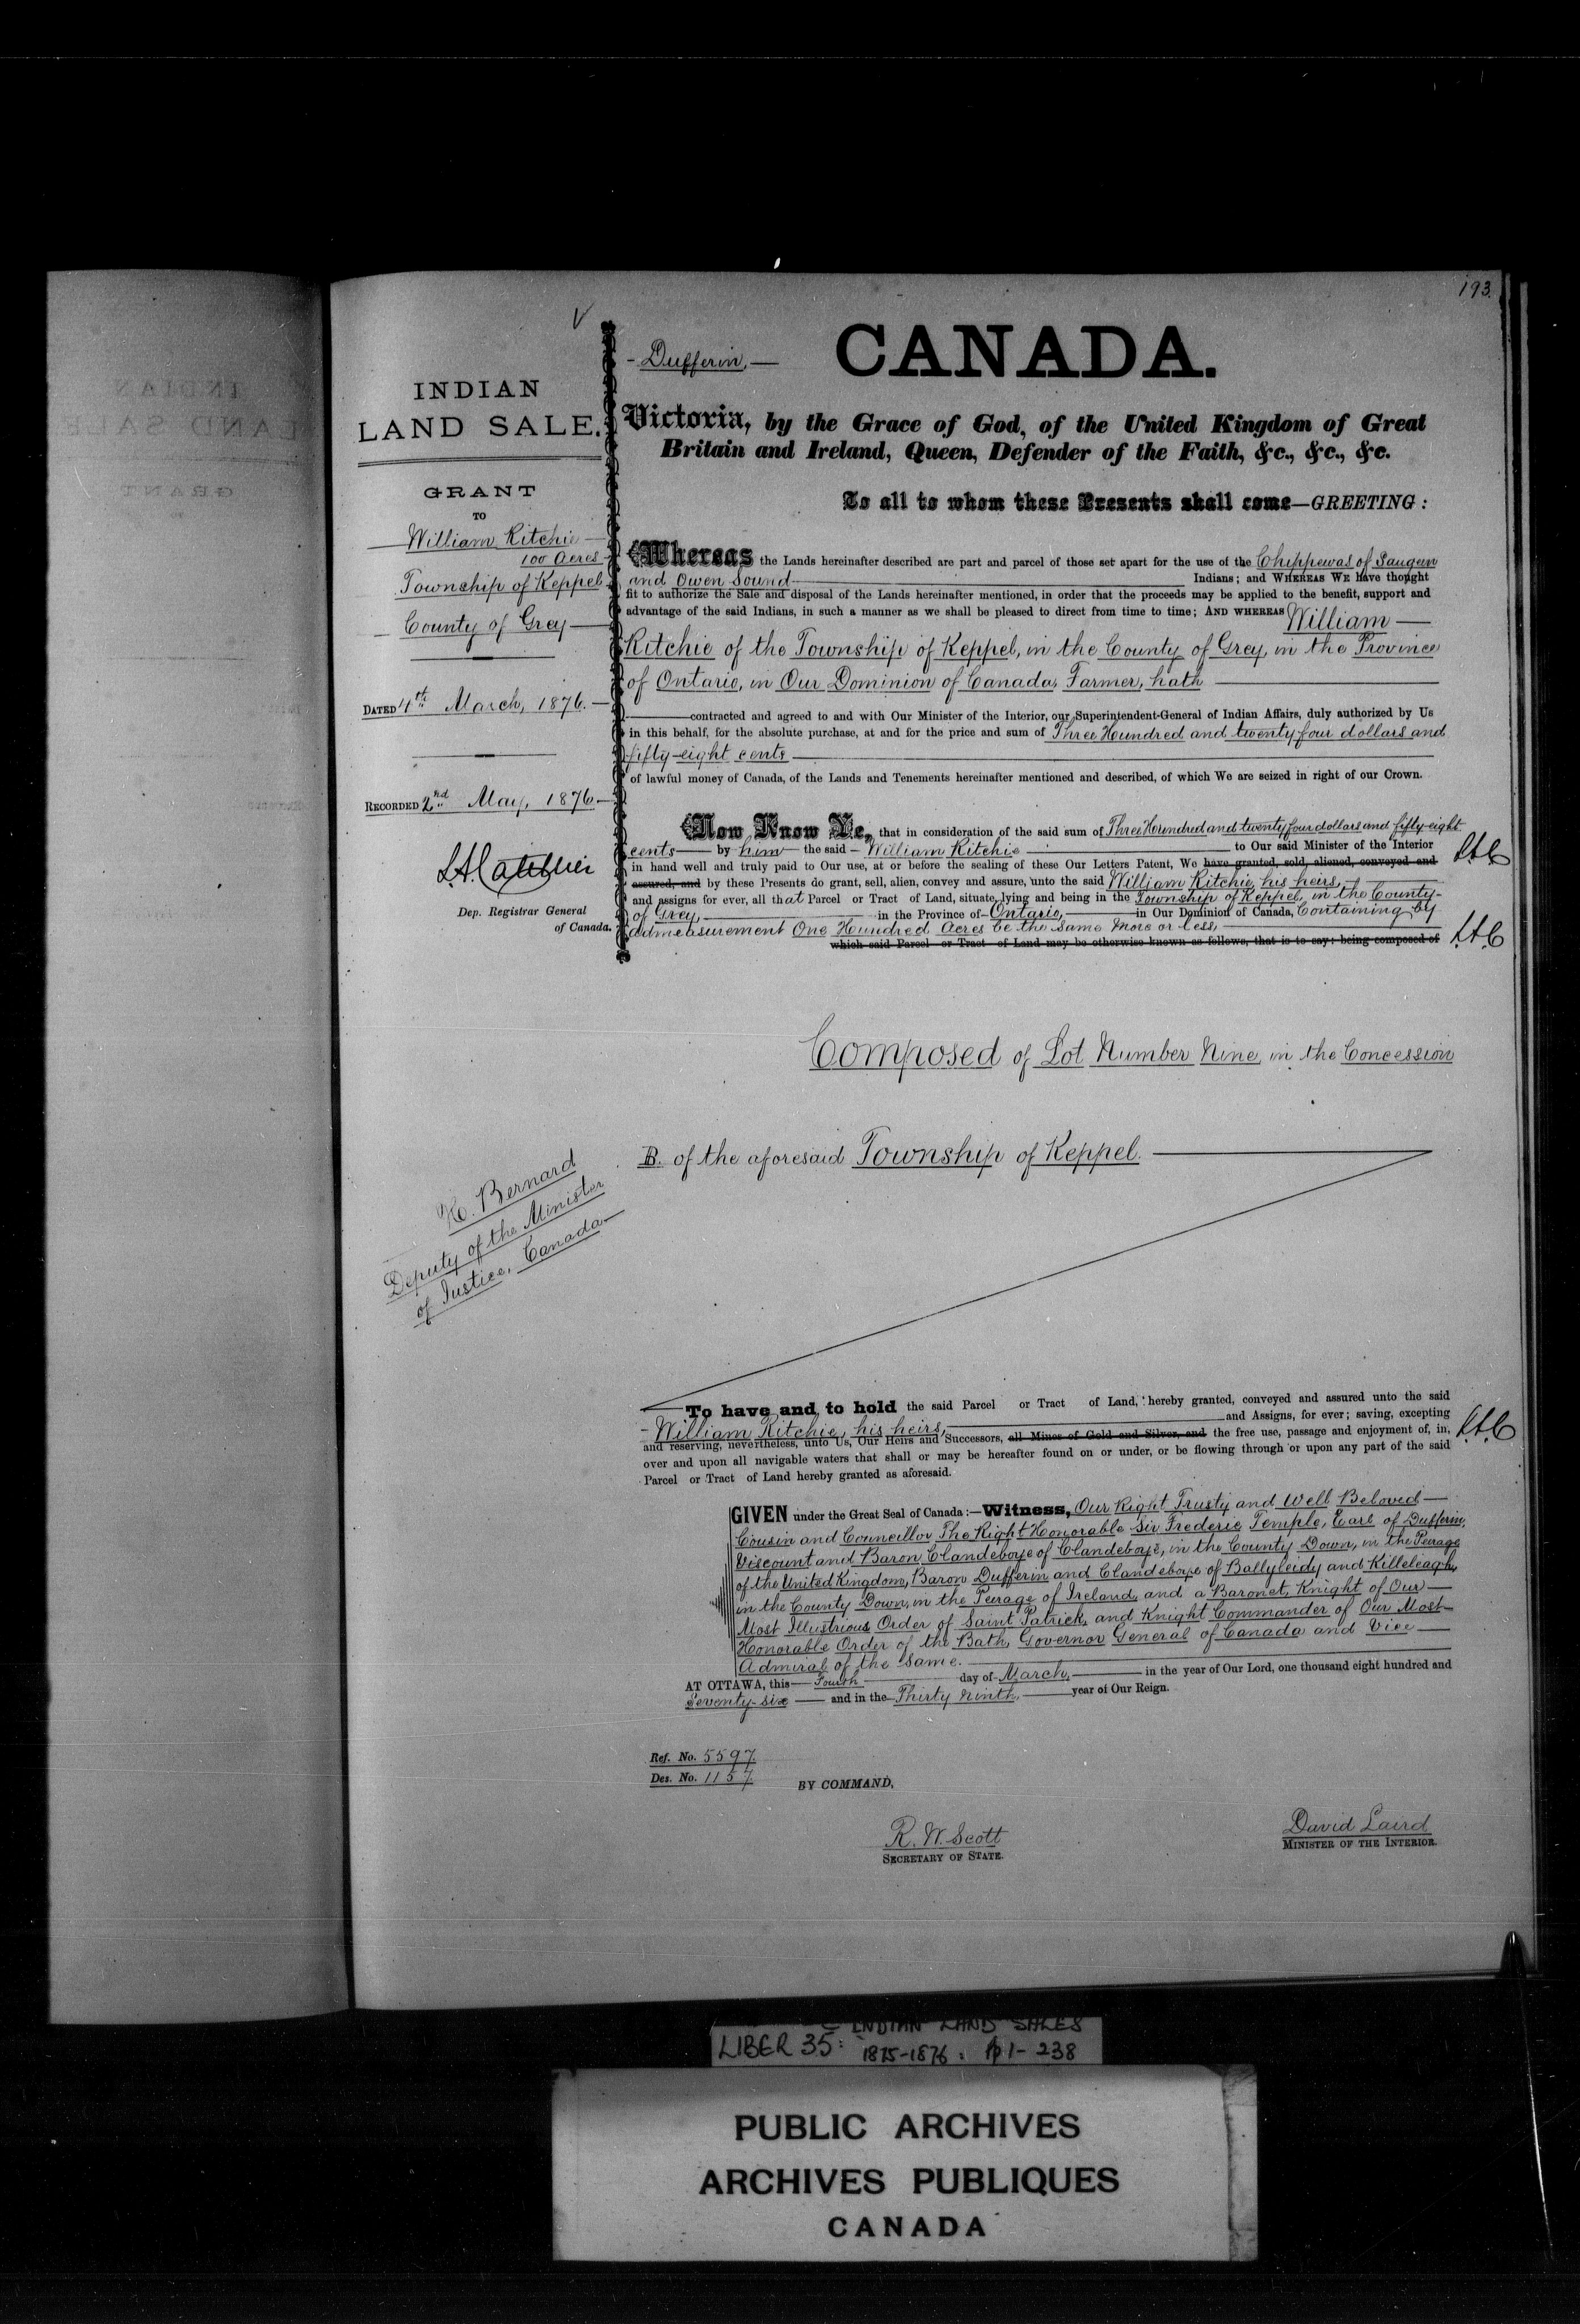 193.
V
INDIAN
LAND SALE.
GRANT
TO
William Ritchie
100 Acres
Township of Keppel
County of Grey
DATED 4th March, 1876.
RECORDED 2nd May, 1876
L.A. Catellier
Dep. Registrar General
of Canada.
K. Bernard
Deputy of the Minister
of Justice, Canada
- Dufferin, -
CANADA.
Victoria, by the Grace of God, of the United Kingdom of Great
Britain and Ireland, Queen, Defender of the Faith, &c., &c., &c.
To all to whom these Presents shall come—GREETING:
Whereas the Lands hereinafter described are part and parcel of those set apart for the use of the Chippewas of Saugeen
and Owen Sound Indians; and WHEREAS WE have thought
fit to authorize the Sale and disposal of the Lands hereinafter mentioned, in order that the proceeds may be applied to the benefit, support and
advantage of the said Indians, in such a manner as we shall be pleased to direct from time to time; AND WHEREAS William
Ritchie of the Township of Keppel, in the County of Grey, in the Province
of Ontario, in Our Dominion of Canada, Farmer, hath
contracted and agreed to and with Our Minister of the Interior, our Superintendent-General of Indian Affairs, duly authorized by Us
in this behalf, for the absolute purchase, at and for the price and sum of Three Hundred and twenty four dollars and
fifty-eight cents
of lawful money of Canada, of the Lands and Tenements hereinafter mentioned and described, of which We are seized in right of our Crown.
Now Know Ye, that in consideration of the said sum of Three Hundred and twenty four dollars and fifty-eight
cents by him the said William Ritchie to Our said Minister of the Interior
in hand well and truly paid to Our use, at or before the sealing of these Our Letters Patent, We have granted, sold, aliened, conveyed and L.A.C
assured, and by these Presents do grant, sell, alien, convey and assure, unto the said William Ritchie, his heirs,
and assigns for ever, all that Parcel or Tract of Land, situate, lying and being in the Township of Keppel, in the County
of Grey, in the Province of Ontario, in Our Dominion of Canada, Containing by
admeasurement One Hundred Acres be the same more or less,
which said Parcel or Tract of Land may be otherwise known as follows, that is to say: being composed of L.A.C
Composed of Lot Number Nine, in the Concession
B. of the aforesaid Township of Keppel.
To have and to hold the said Parcel or Tract of Land, hereby granted, conveyed and assured unto the said
William Ritchie, his heirs, and Assigns, for ever; saving, excepting
and reserving, nevertheless, unto Us, Our Heirs and Successors, all Mines of Gold and Silver, and the free use, passage and enjoyment of, in, L.A.C
over and upon all navigable waters that shall or may be hereafter found on or under, or be flowing through or upon any part of the said
Parcel or Tract of Land hereby granted as aforesaid.
GIVEN under the Great Seal of Canada:—Witness, Our Right Trusty and Well Beloved
Cousin and Councillor The Right Honorable Sir Frederic Temple, Earl of Dufferin,
Viscount and Baron Clandeboye of Clandeboye, in the County Down, in the Peerage
of the United Kingdom, Baron Dufferin and Clandeboye of Ballyleidy and Killeleagh,
in the County Down, in the Peerage of Ireland, and a Baronet, Knight of Our
Most Illustrious Order of Saint Patrick, and Knight Commander of Our Most
Honorable Order of the Bath, Governor General of Canada and Vice
Admiral of the same.
AT OTTAWA, this Fourth day of March, in the year of Our Lord, one thousand eight hundred and
Seventy-six and in the Thirty Ninth, year of Our Reign.
Ref. No. 5597.
Des. No. 1157.
BY COMMAND,
R. W. Scott
SECRETARY OF STATE.
David Laird
MINISTER OF THE INTERIOR.
LIBER 35: INDIAN LAND SALES
1875-1876: pp 1-238
PUBLIC ARCHIVES
ARCHIVES PUBLIQUES
CANADA